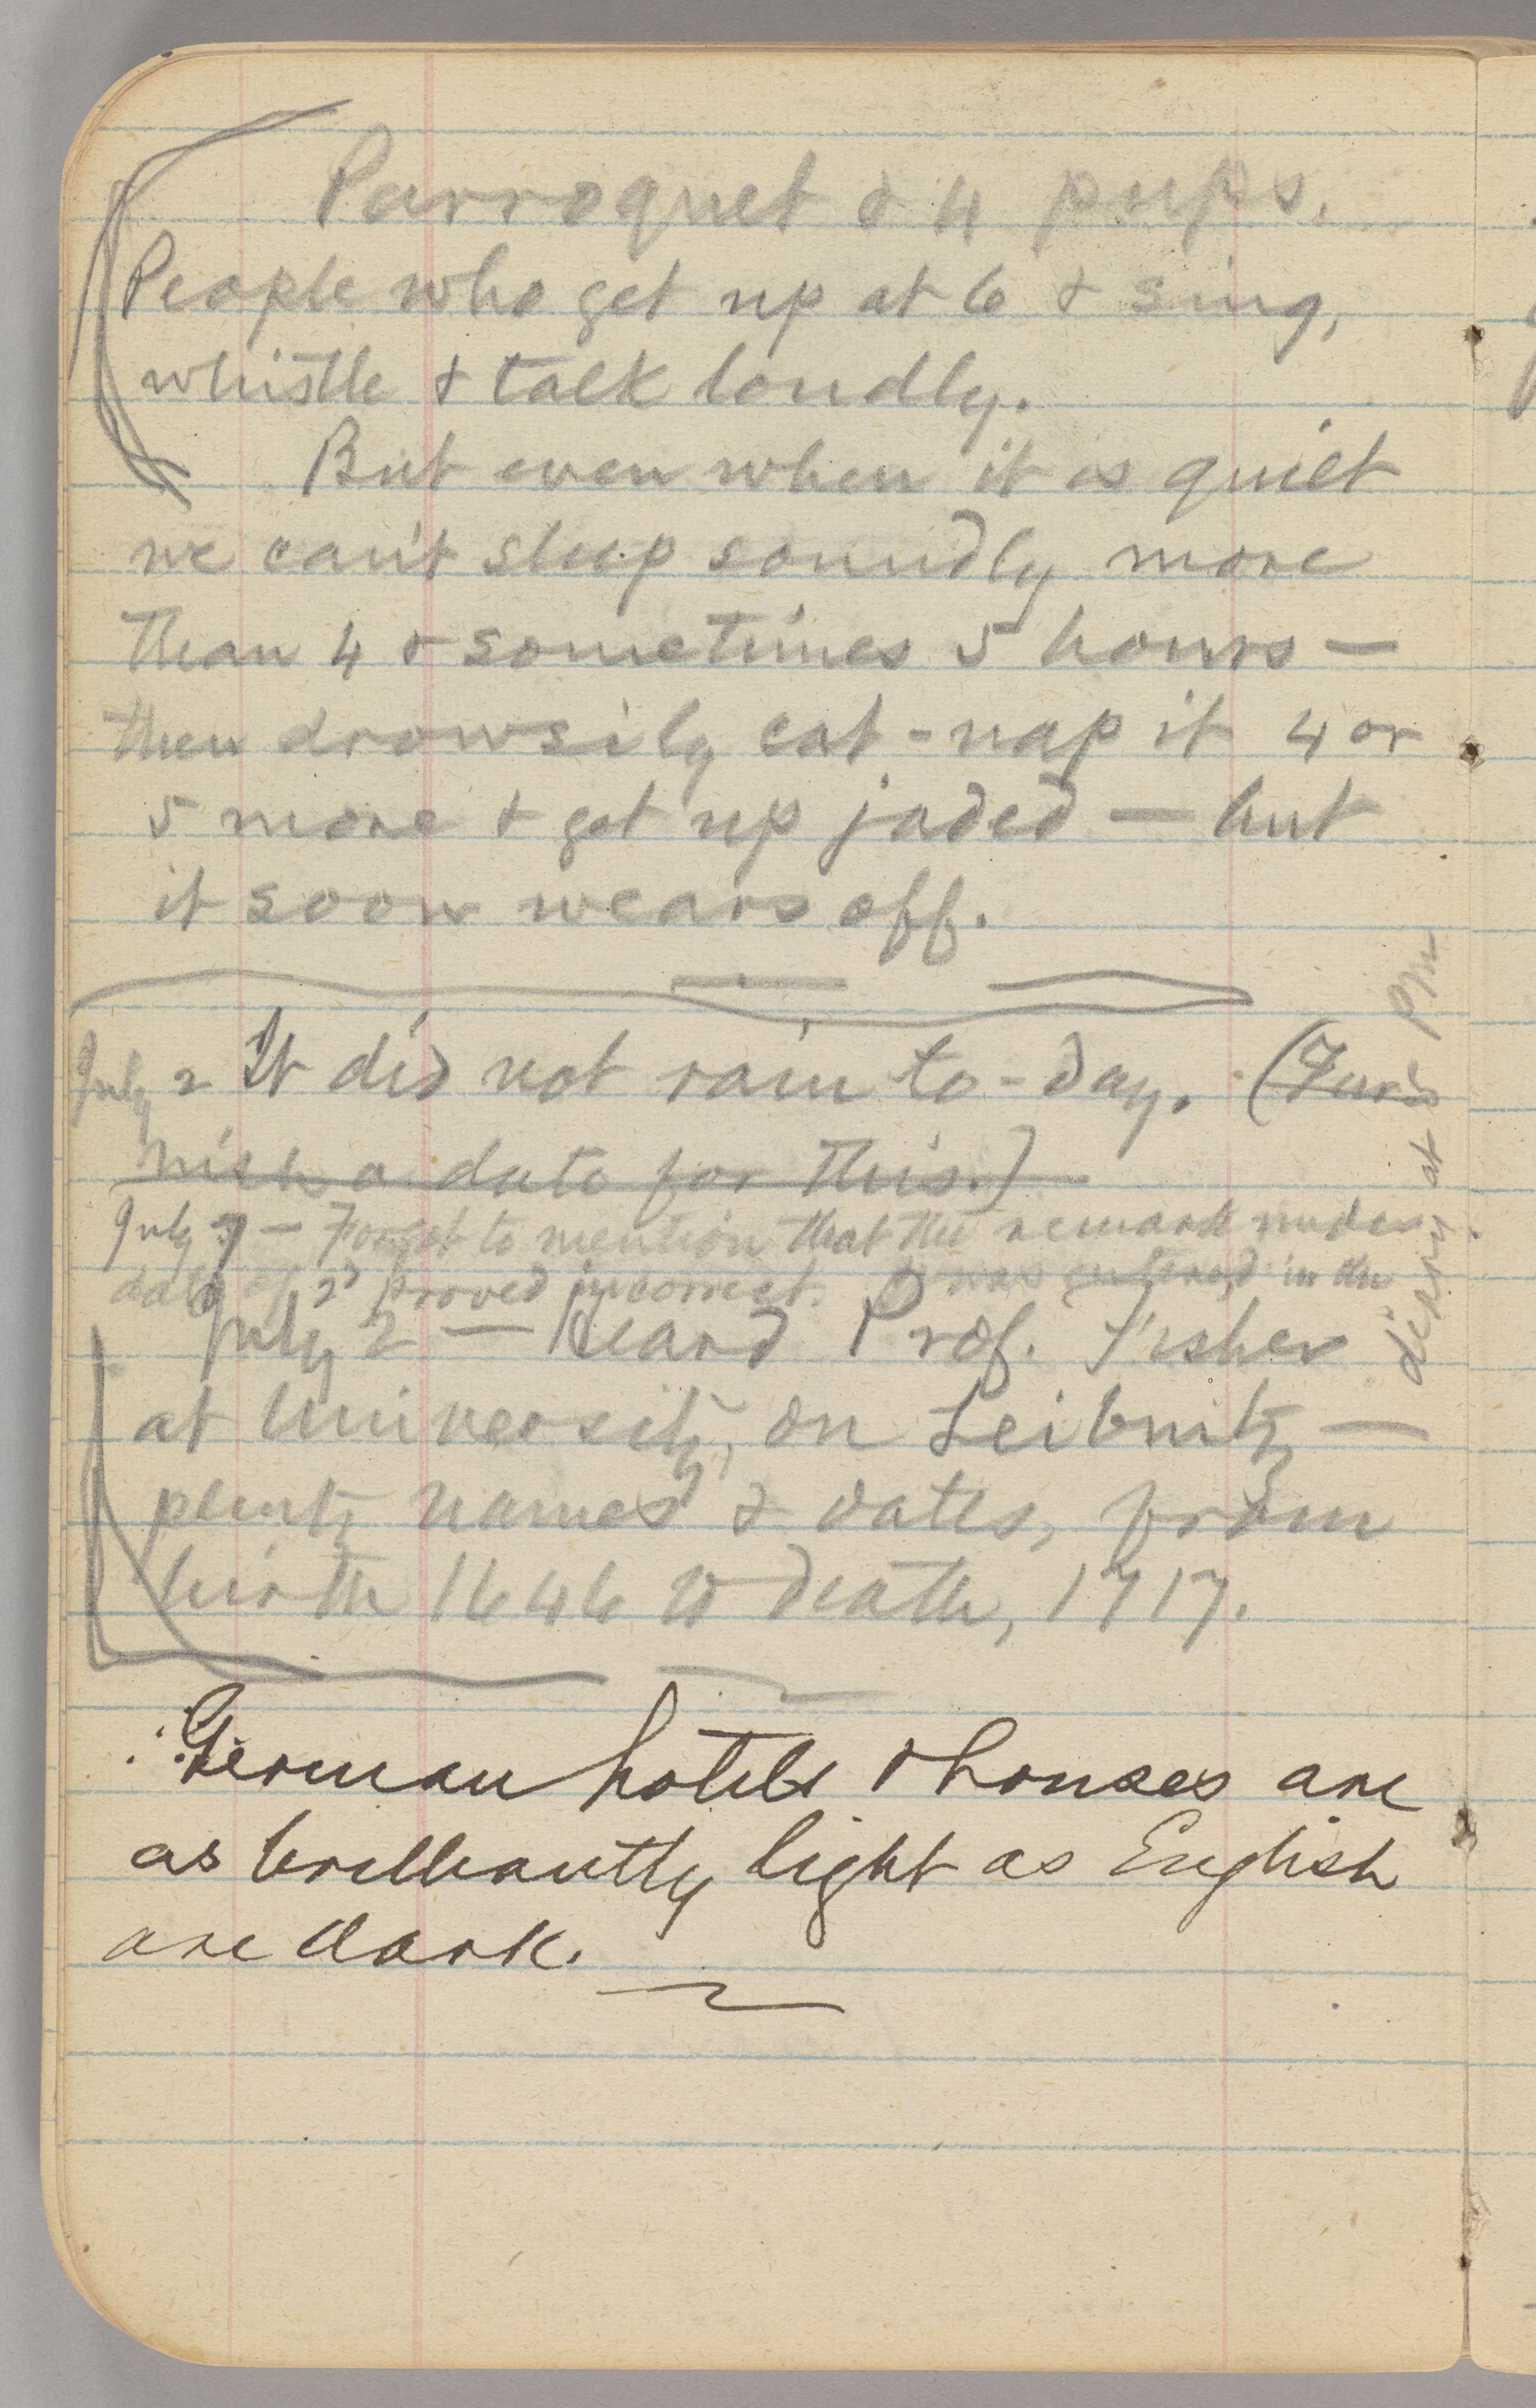 Parroquet & 4 pups.
People who get up at 6 & sing,
whistle & talk loudly.
But even when it is quiet
we can't sleep soundly more
than 4 & sometimes 5 hours —
then drowsily cat-nap it 4 or
5 more & get up jaded — but
it soon wears off.
July 2 It did not rain to-day. (Fur-
nish a date for this.)
July 7 — Forgot to mention that the remark under
date of 2d proved incorrect. It was entered in the
diary at 5 PM
July 2 — Heard Prof. Fisher
at University, on Leibnitz —
plenty names & dates, from
birth 1646 to death, 1717.
German hotels & houses are
as brilliantly light as English
are dark.